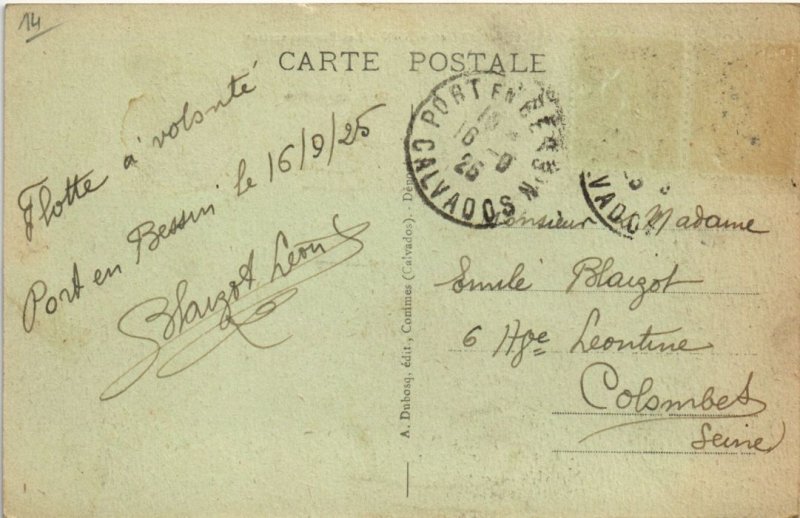 14
CARTE POSTALE
Flotte à volonté
Port en Bessin le 16/9/25
Blaizot Léon
A. Dubosq, édit, Commes (Calvados). - Dépo
PORT EN BESSIN
16 - 9
25
CALVADOS
VADO
Monsieur & Madame
Emile Blaizot
6 Ave Leontine
Colombes
Seine